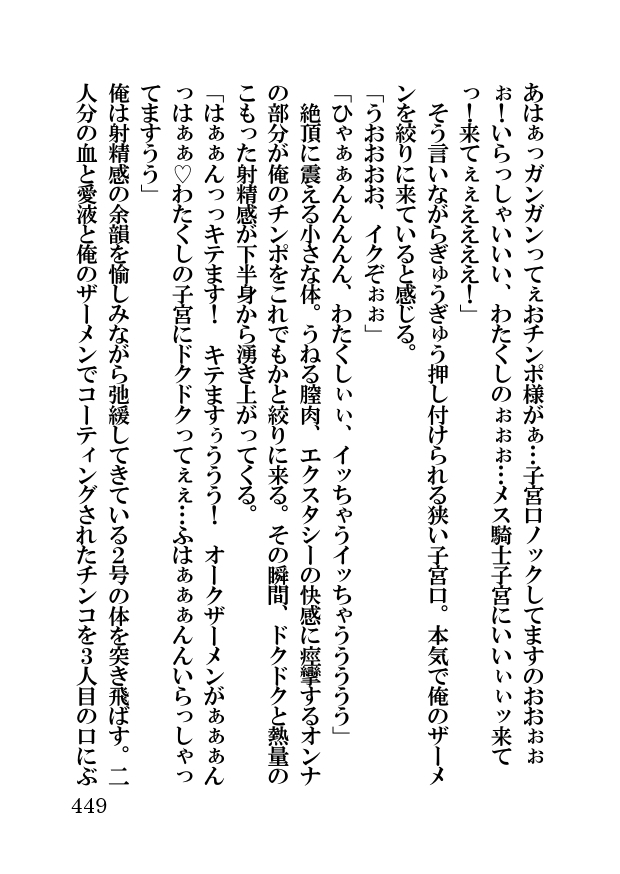 あはぁっガンガンってぇおチンポ様がぁ…子宮口ノックしてますのおおぉぉ
ぉ！いらっしゃいいい、わたくしのぉぉぉ…メス騎士子宮にいいぃぃッ来て
っ！来てぇぇえええ！」
そう言いながらぎゅうぎゅう押し付けられる狭い子宮口。本気で俺のザーメ
ンを絞りに来ていると感じる。
「うおおおお、イクぞぉぉ」
「ひゃぁぁんんんんん、わたくしぃぃ、イッちゃうイッちゃううううう」
絶頂に震える小さな体。うねる膣肉、エクスタシーの快感に痙攣するオンナ
の部分が俺のチンポをこれでもかと絞りに来る。その瞬間、ドクドクと熱量の
こもった射精感が下半身から湧き上がってくる。
「はぁぁんっっキテます！　キテますぅううう！　オークザーメンがぁぁぁん
っはぁぁ♡わたくしの子宮にドクドクってぇぇ…ふはぁぁぁんんいらっしゃっ
てますうう」
俺は射精感の余韻を愉しみながら弛緩してきている２号の体を突き飛ばす。二
人分の血と愛液と俺のザーメンでコーティングされたチンコを３人目の口にぶ
449